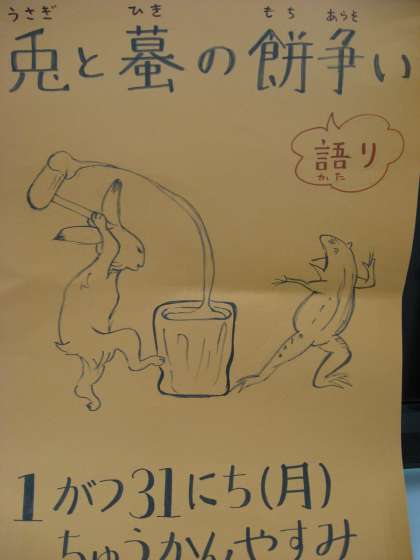 うさぎ ひき もち あらそ
兎と蟇の餅争い
語り
かた
1がつ31にち(月)
ちゅうかんやすみ